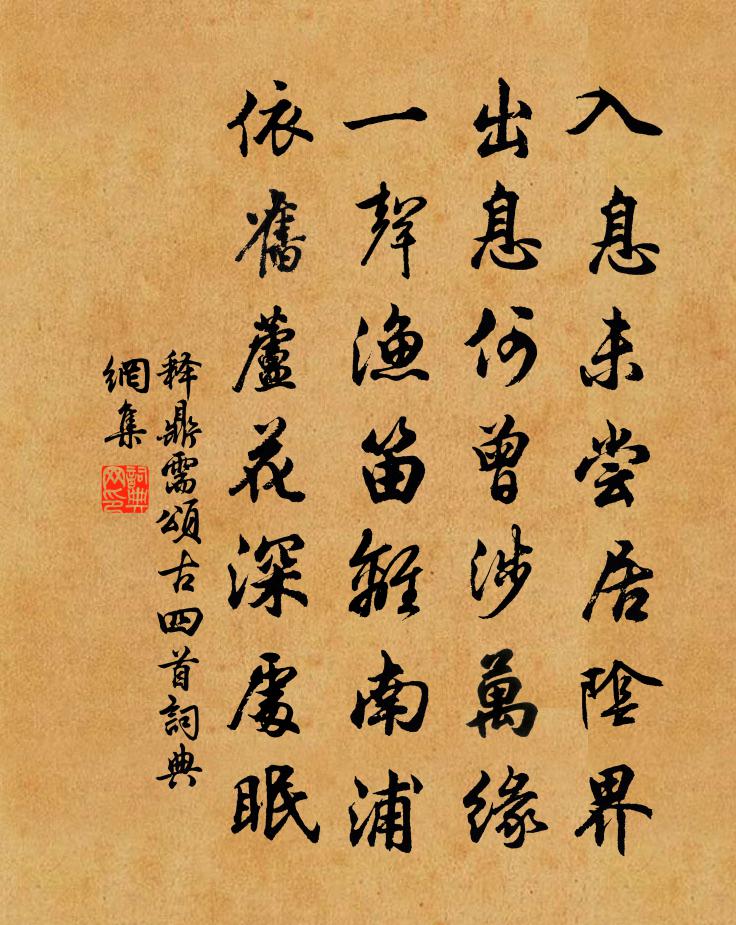 入息未尝居陰界
出息何曾涉萬緣
一聲漁笛離南浦
依舊蘆花深處眠
释鼎需頌古四首詞典
網集
詞典
网印